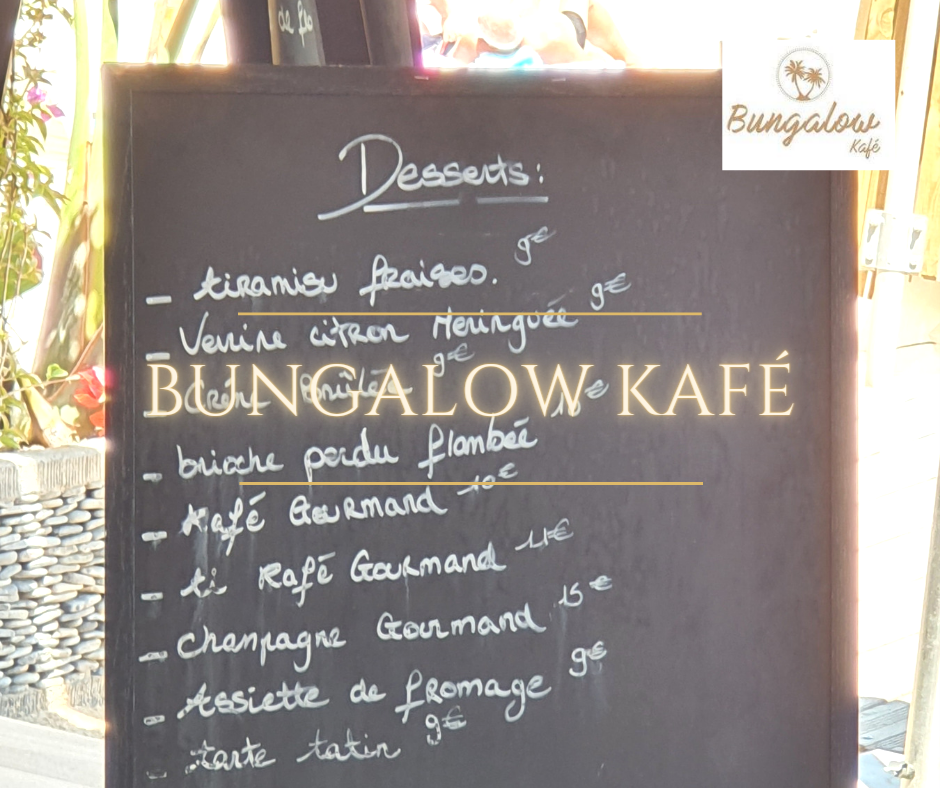 de feu
Bungalow
Kafé
Desserts:
- tiramisu fraises. 9€
- Verrine citron Meringuée 9€
- Crème Brûlée 9€
BUNGALOW KAFÉ
- brioche perdu flambée 10€
- Kafé Gourmand 10€
- ti Kafé Gourmand 11€
- Champagne Gourmand 15€
- Assiette de fromage 9€
- tarte tatin 9€